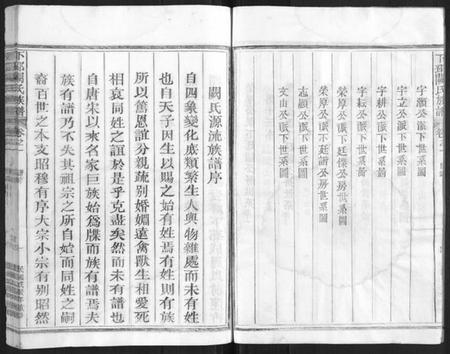 下邳闕氏族譜 卷之一
字灝公派下世系圖
字立公派下世系圖
字耕公派下世系圖
字耘公派下世系圖
榮厚公派下廷傑公房世系圖
榮厚公派下廷諧公房世系圖
志顯公派下世系圖
文山公派下世系圖
闕氏源流族譜序
自四象變化庶類繁生人與物雜處而未有姓
也自天子因生以賜之始有姓焉有姓則有族
所以篤恩誼分親疏別婚媾遠禽獸生相愛死
相哀同姓之誼於是乎克盡矣然而未有譜也
自唐宋以來名家巨族始為牒而族有譜焉夫
族有譜乃不失其祖宗之所自始而同姓之嗣
裔百世之本支昭穆有序大宗小宗有别昭然
下邳闕氏族譜 卷之一